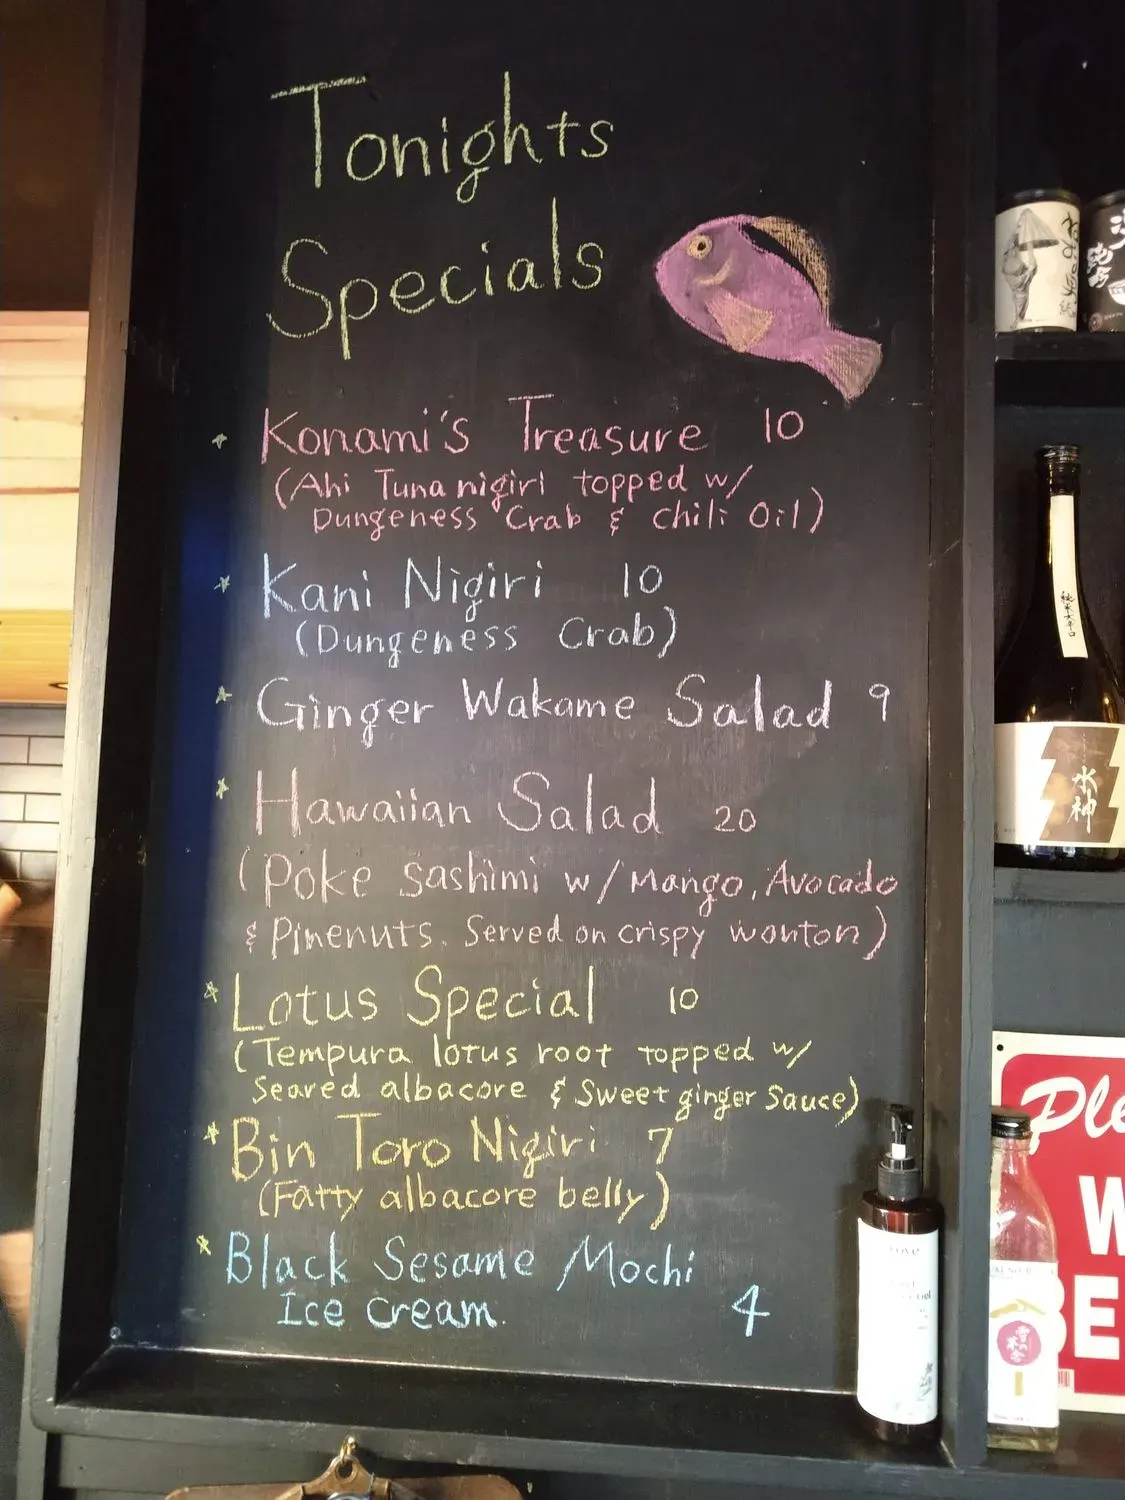 Tonights
Specials
Konami's Treasure 10
(Ahi Tuna nigiri topped w/
Dungeness Crab & Chili Oil)
Kani Nigiri 10
(Dungeness Crab)
Ginger Wakame Salad 9
Hawaiian Salad 20
(Poke Sashimi w/ Mango, Avocado
& Pinenuts. Served on crispy wonton)
Lotus Special 10
(Tempura lotus root topped w/
Seared albacore & Sweet ginger Sauce)
Bin Toro Nigiri 7
(Fatty albacore belly)
Black Sesame Mochi
Ice Cream. 4
純米大辛口
水神
Ple
W
BE